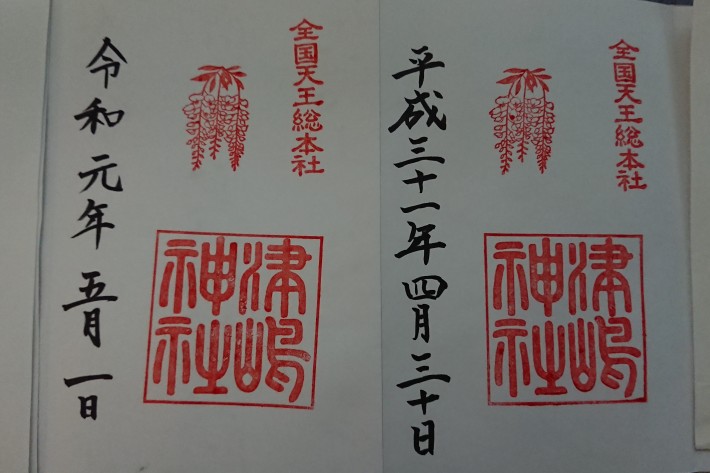 全国天王総本社
平成三十一年四月三十日
津嶋神社
全国天王総本社
令和元年五月一日
津嶋神社